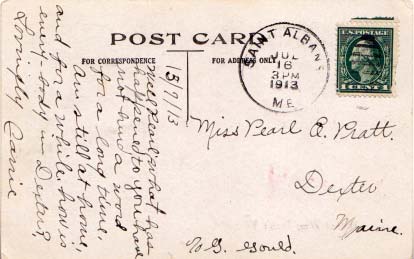 POST CARD
FOR CORRESPONDENCE
FOR ADDRESS ONLY
SAINT ALBANS
JUL
16
3PM
1913
ME.
U.S. POSTAGE
1 CENT 1
15/7/13
Well Pearl what has
happened to you have
not had a word
for a long time,
am still at home,
and for a while how is
every-body in Dexter?
Lovingly
Miss Pearl E. Pratt.
Dexter
Maine.
Gould.